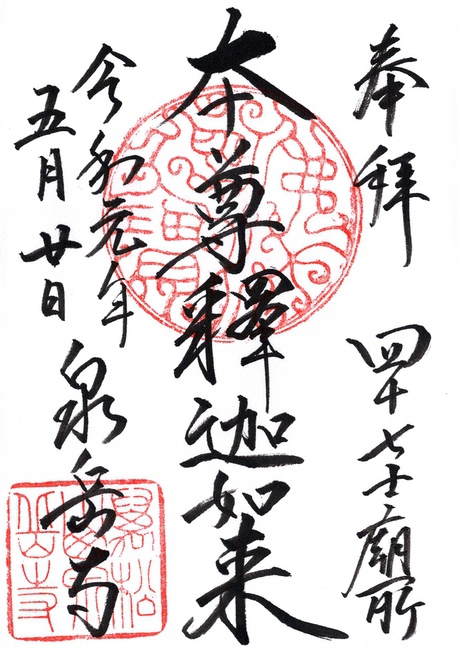 奉拝
四十七士廟所
本尊釋迦如来
令和元年
五月廿日
泉岳寺